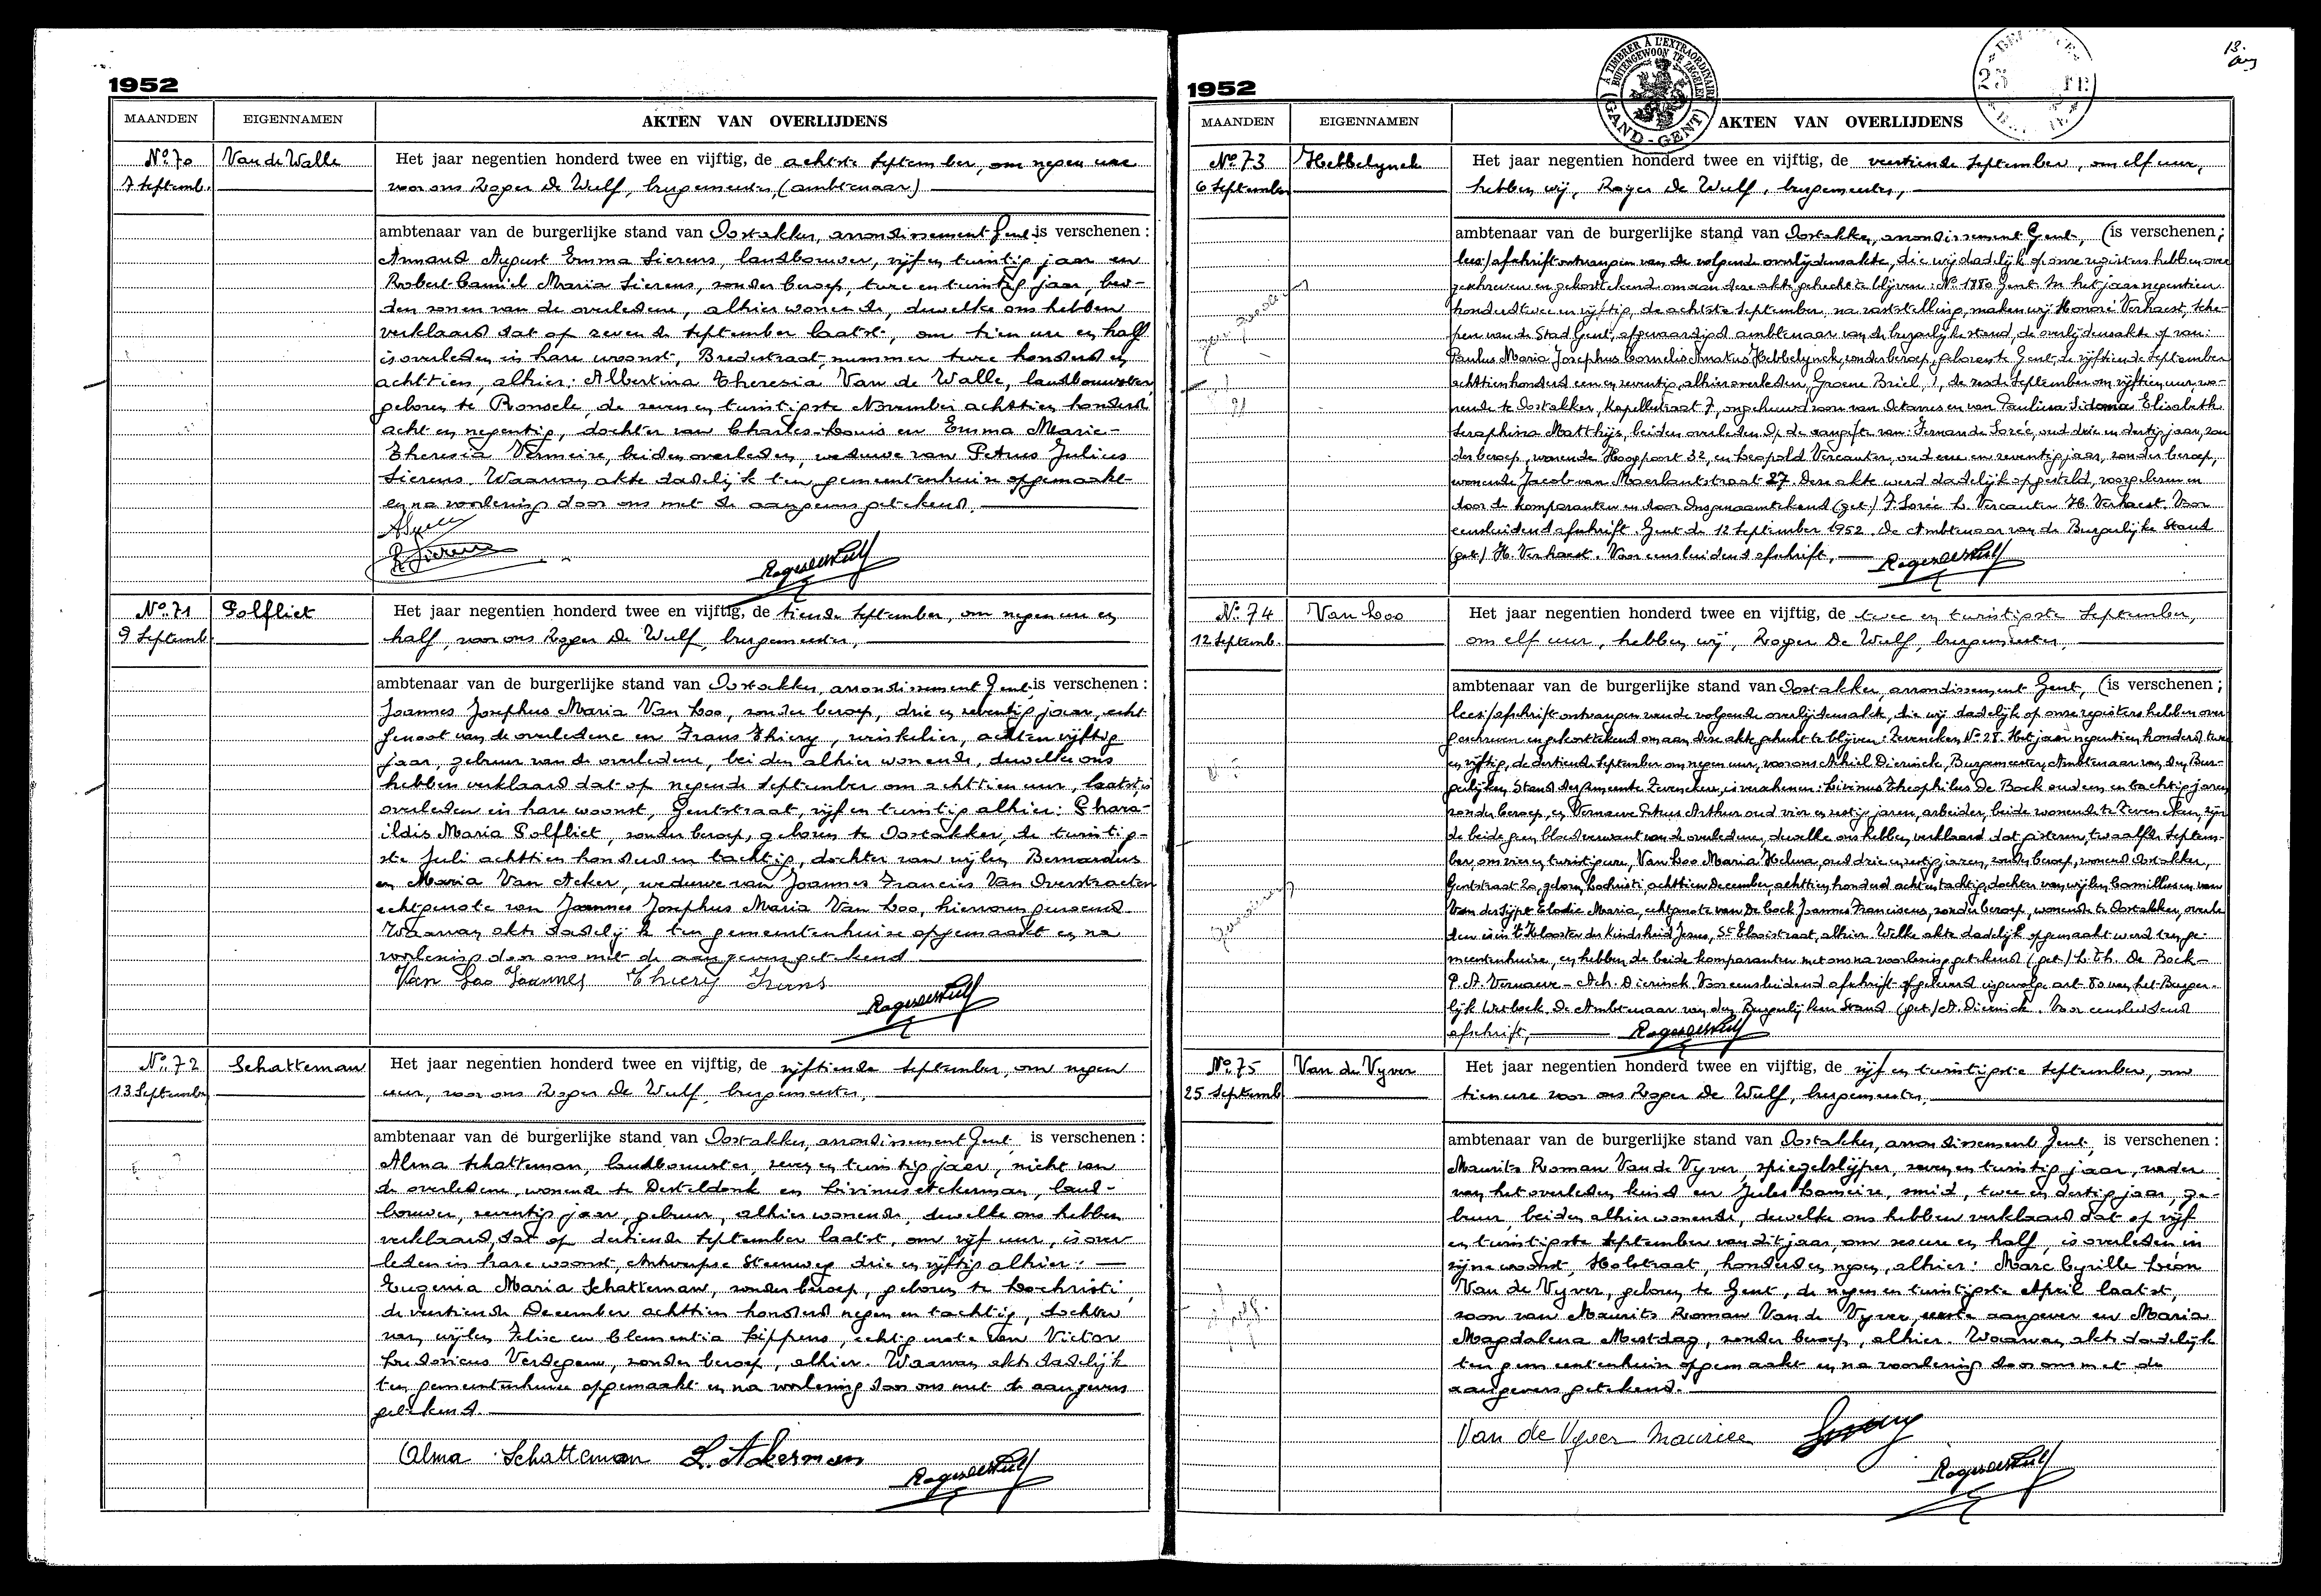 1952
MAANDEN EIGENNAMEN AKTEN VAN OVERLIJDENS
No 70 Van de Walle
7 Septemb.
Het jaar negentien honderd twee en vijftig, de achtste September, om negen ure
voor ons Roger De Wulf, burgemeester, (ambtenaar)
ambtenaar van de burgerlijke stand van Oostakker, arrondissement Gent is verschenen :
Armand August Emma Sierens, landbouwer, vijf en twintig jaar en
Robert Camiel Maria Sierens, zonder beroep, twee en twintig jaar, bei-
den zonen van de overledene, alhier wonende, dewelke ons hebben
verklaard dat op zevende September laatst, om tien ure en half
is overleden in hare woonst, Bredestraat, nummer twee honderd en
achttien, alhier: Albertina Theresia Van de Walle, landbouwster,
geboren te Ronsele, de zeven en twintigste November achttien honderd
acht en negentig, dochter van Charles-Louis en Emma Marie-
Theresia Vermeire, beiden overleden, weduwe van Petrus Julius
Sierens. Waarvan akte dadelijk ten gemeentenhuize opgemaakt
en na voorlezing door ons met de aangevers getekend.
R. Sierens
Roger de Wulf
No 71 Polfliet
9 Septemb.
Het jaar negentien honderd twee en vijftig, de tiende September, om negen ure en
half, voor ons Roger De Wulf, burgemeester,
ambtenaar van de burgerlijke stand van Oostakker, arrondissement Gent is verschenen :
Joannes Josephus Maria Van Loo, zonder beroep, drie en zeventig jaar, echt-
genoot van de overledene en Frans Thiery, winkelier, acht en vijftig
jaar, gebuur van de overledene, beiden alhier wonende, dewelke ons
hebben verklaard dat op negende September om achttien uur, laatst, is
overleden in hare woonst, Gentstraat, vijf en twintig alhier: Phara-
ildis Maria Polfliet, zonder beroep, geboren te Oostakker, de twintig-
ste Juli achttien honderd en tachtig, dochter van wijlen Bernardus
en Maria Van Acker, weduwe van Joannes Francies Van Overstraeten
echtgenote van Joannes Josephus Maria Van Loo, hiervoren genoemd.
Waarvan akte dadelijk ten gemeentenhuize opgemaakt en na
voorlezing door ons met de aangevers getekend
Van Loo Joannes Thiery Frans
Roger de Wulf
No 72 Schatteman
13 September
Het jaar negentien honderd twee en vijftig, de vijftiende September, om negen
uur, voor ons Roger De Wulf, burgemeester,
ambtenaar van de burgerlijke stand van Oostakker, arrondissement Gent is verschenen :
Alma Schatteman, landbouwster, zeven en twintig jaar, nicht van
de overledene, wonende te Desteldonk en Livinus Ackerman, land-
bouwer, zeventig jaar, gebuur, alhier wonende, dewelke ons hebben
verklaard, dat op dertiende September laatst, om vijf uur, is over-
leden in hare woonst, Antwerpse Steenweg drie en vijftig alhier:
Eugenia Maria Schatteman, zonder beroep, geboren te Lochristi,
de veertiende December achttien honderd negen en tachtig, dochter
van wijlen Felix en Clementia Lippens, echtgenote van Victor
Ludovicus Verdegem, zonder beroep, alhier. Waarvan akte dadelijk
ten gemeentenhuize opgemaakt en na voorlezing door ons met de aangevers
getekend.
Alma Schatteman L. Ackerman
Roger de Wulf
1952
A TIMBRER À L'EXTRAORDINAIRE
BUITENGEWOON TE ZEGELEN
GAND - GENT
MAANDEN EIGENNAMEN AKTEN VAN OVERLIJDENS
No 73 Hebbelynck
6 September
Het jaar negentien honderd twee en vijftig, de veertiende September, om elf uur,
hebben wij, Roger De Wulf, burgemeester,
ambtenaar van de burgerlijke stand van Oostakker, arrondissement Gent, (is verschenen ;
lees/afschrift ontvangen van de volgende overlijdensakte, die wij dadelijk op onze registers hebben over
geschreven en gekorttekend om aan deze akte gehecht te blijven: No 1880 Gent. In het jaar negentien
honderd twee en vijftig, de achtste September, na vaststelling, maken wij Honoré Verhaest, Sche-
pen van de Stad Gent, afgevaardigd ambtenaar van de burgerlijke stand, de overlijdensakte op van:
Paulus Maria Josephus Cornelis Amatus Hebbelynck, zonder beroep, geboren te Gent de vijftiende September
achttienhonderd een en zeventig, alhier overleden, Groene Briel, 1, de zesde September om vijftien uur, wo-
nende te Oostakker, Kapellestraat 7, ongehuwd zoon van Octavus en van Paulina Sidonia Elisabeth
Seraphina Matthijs, beiden overleden. Op de aangifte van: Fernande Sorée, oud drie en dertig jaar, zon-
der beroep, wonende Hoogpoort 32, en Leopold Vercauter, oud een en zeventig jaar, zonder beroep,
wonende Jacob van Maerlantstraat 27. Deze akte werd dadelijk opgesteld, voorgelezen en
door de komparanten en door Ons genaamtekend (get.) F. Sorée L. Vercauter H. Verhaest. Voor
eensluidend afschrift. Gent de 12 September 1952. De Ambtenaar van de Burgerlijke Stand
(get.) H. Verhaest. Voor eensluidend afschrift,
Roger de Wulf
No 74 Van Loo
12 Septemb.
Het jaar negentien honderd twee en vijftig, de twee en twintigste September,
om elf uur, hebben wij, Roger De Wulf, burgemeester,
ambtenaar van de burgerlijke stand van Oostakker arrondissement Gent, (is verschenen ;
lees/afschrift ontvangen van de volgende overlijdensakte, die wij dadelijk op onze registers hebben over
geschreven en gekorttekend om aan deze akte gehecht te blijven: Zeveneken No 28. Het jaar negentien honderd twee
en vijftig, de dertiende September om negen uur, voor ons Achiel Dierinck, Burgemeester, Ambtenaar van den Bur-
gerlijken Stand der gemeente Zeveneken, is verschenen: Livinus Theophilus De Bock oud een en tachtig jaren
zonder beroep, en Vernaeve Petrus Arthur oud vier en zestig jaren, arbeider, beide wonende te Zeveneken, zijn
de beide geen bloedverwant van de overledene, dewelke ons hebben verklaard dat gisteren, twaalfde Septem-
ber, om vier en twintig ure, Van Loo Maria Helena, oud drie en zestig jaren, zonder beroep, wonend Oostakker,
Gentstraat 20, geboren Lochristi achttien December achttien honderd acht en tachtig, dochter van wijlen Camillus en van
Van der Sijpt Elodie Maria, echtgenote van De Cock Joannes Franciscus, zonder beroep, wonende te Oostakker, overle-
den is in 't Klooster der Kindsheid Jesus, St Elooistraat, alhier. Welke akte dadelijk opgemaakt werd ten ge-
meentenhuize, en hebben de beide komparanten met ons na voorlezing getekend (get.) L. Th. De Bock -
P. A. Vernaeve - Ach. Dierinck. Voor eensluidend afschrift afgeleverd ingevolge art. 80 van het Burger-
lijk Wetboek. De Ambtenaar van den Burgerlijken Stand (get.) A. Dierinck. Voor eensluidend
afschrift,
Roger de Wulf
No 75 Van de Vyver
25 Septemb
Het jaar negentien honderd twee en vijftig, de vijf en twintigste September, om
tien ure voor ons Roger De Wulf, burgemeester,
ambtenaar van de burgerlijke stand van Oostakker, arrondissement Gent, is verschenen :
Maurits Roman Van de Vyver, spiegelslijper, zeven en twintig jaar, vader
van het overleden kind en Jules Lameire, smid, twee en dertig jaar, ge-
buur, beiden alhier wonende, dewelke ons hebben verklaard dat op vijf
en twintigste September van dit jaar, om zes ure en half, is overleden in
zijne woonst, Holstraat, honderd en negen, alhier: Marc Cyrille Léon
Van de Vyver, geboren te Gent, de negen en twintigste April laatst,
zoon van Maurits Roman Van de Vyver, eerste aangever en Maria
Magdalena Mestdag, zonder beroep, alhier. Waarvan akte dadelijk
ten gemeentenhuize opgemaakt en na voorlezing door ons met de
aangevers getekend.
Van de Vyver Maurice
Roger de Wulf